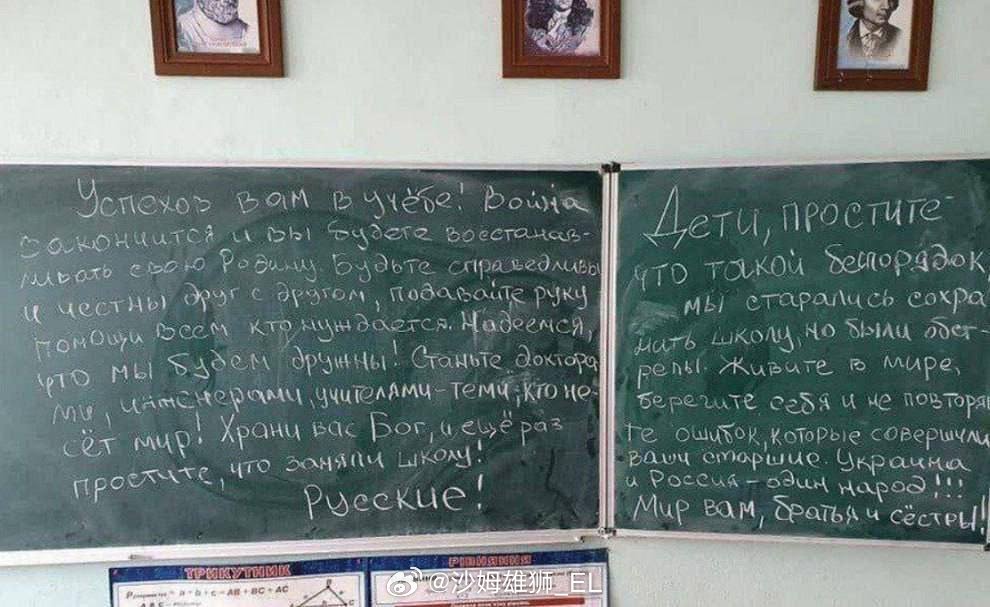 Успехов вам в учёбе! Война
закончится и вы будете восстанав-
ливать свою Родину. Будьте справедливы
и честны друг с другом, подавайте руку
помощи всем кто нуждается. Надеемся,
что мы будем дружны! Станьте доктора-
ми, инженерами, учителями-теми, кто не-
сёт мир! Храни вас Бог, и ещё раз
простите, что заняли школу!
Русские!
Дети, простите
что такой беспорядок,
мы старались сохра
нить школу, но были обст-
релы. Живите в мире,
берегите себя и не повторяй
те ошибок, которые совершили
ваши старшие. Украина
и Россия-один народ!!!
Мир вам, братья и сёстры!
ТРИКУТНИК
= a + b + c = AB + BC + AC
РІВНЯННЯ
@沙姆雄狮_EL